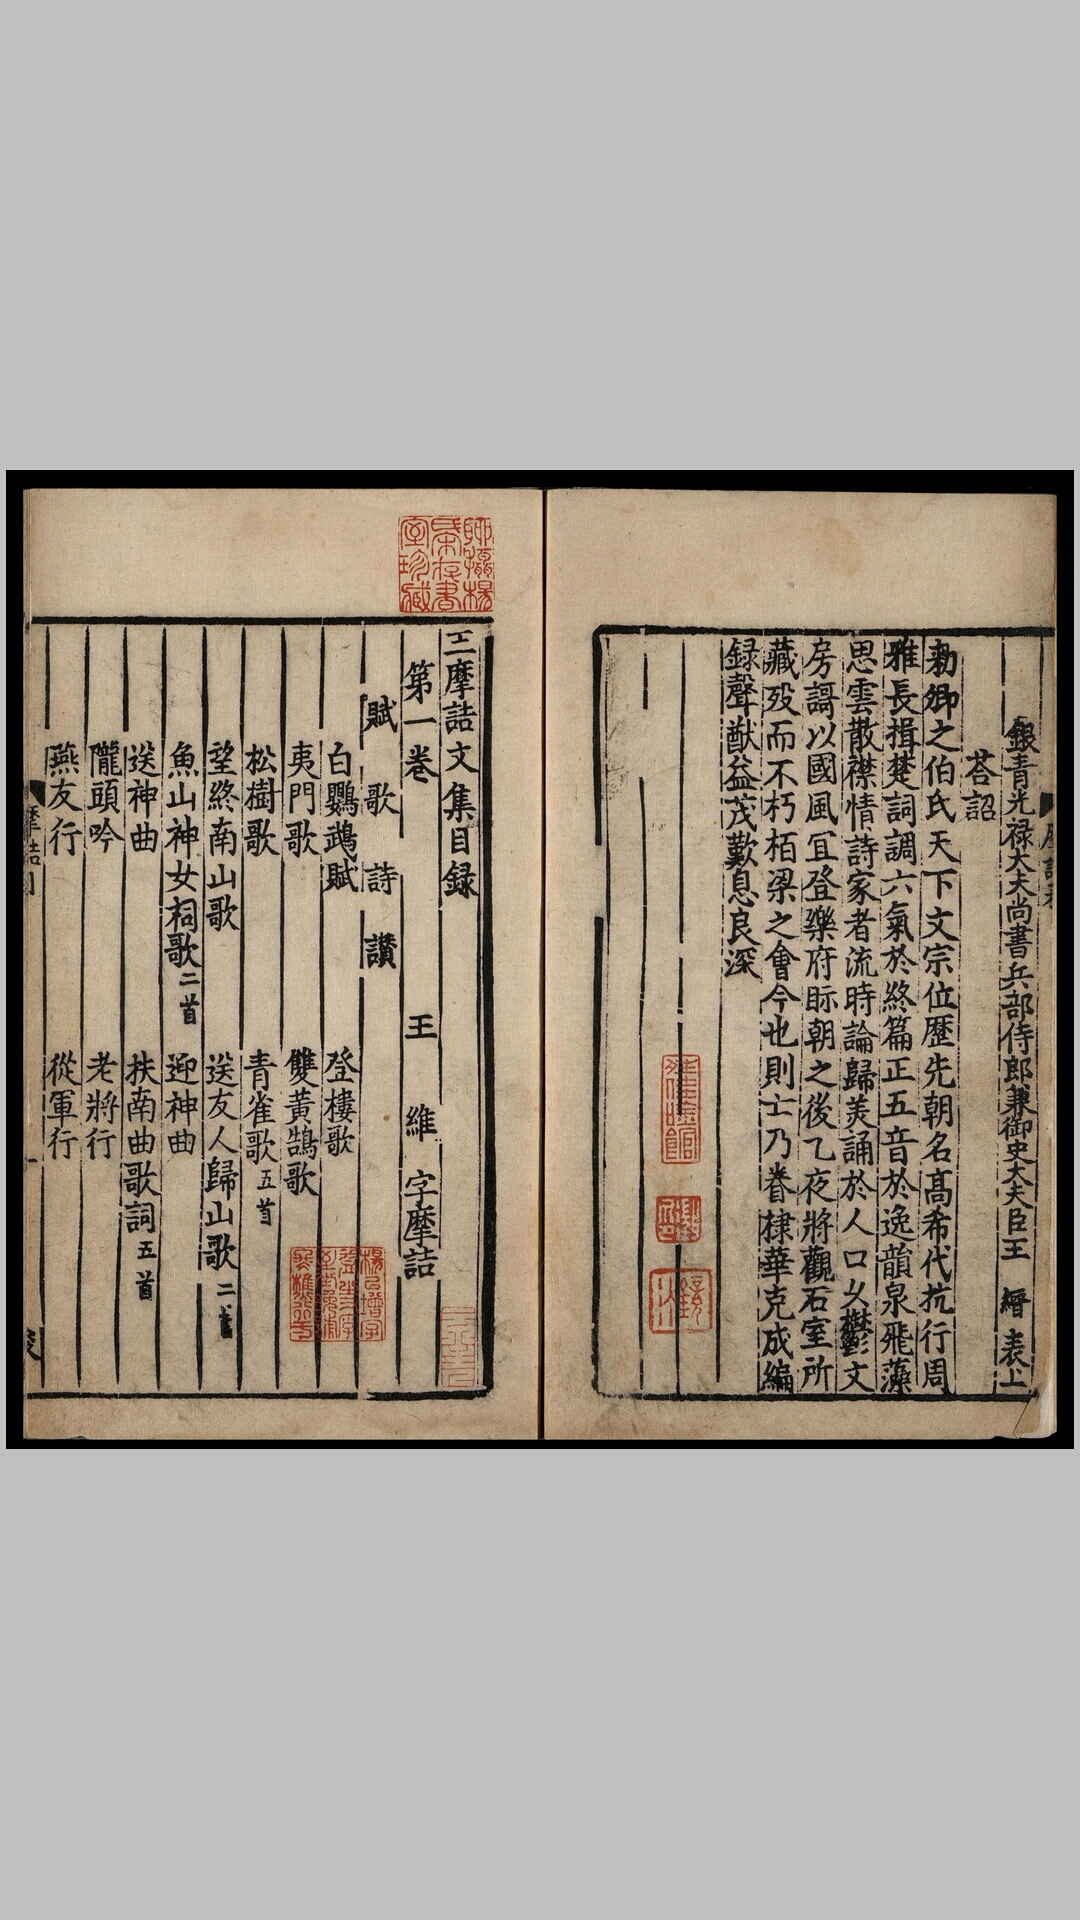 銀青光祿大夫尚書兵部侍郎兼御史大夫臣王 縉 表上
荅詔
勑卿之伯氏天下文宗位歷先朝名高希代抗行周
雅長揖楚詞調六氣於終篇正五音於逸韻泉飛藻
思雲散襟情詩家者流時論歸美誦於人口久鬱文
房謌以國風宜登樂府眎朝之後乙夜將觀石室所
藏歿而不朽栢梁之會今也則士乃眷棣華克成編
録聲猷益茂歎息良深
王摩詰文集目録
第一卷 王 維 字摩詰
賦 歌 詩 讃
白鸚鵡賦 登樓歌
夷門歌 雙黃鵠歌
松樹歌 青雀歌五首
望終南山歌 送友人歸山歌二首
魚山神女祠歌二首 迎神曲
送神曲 扶南曲歌詞五首
隴頭吟 老將行
燕友行 從軍行